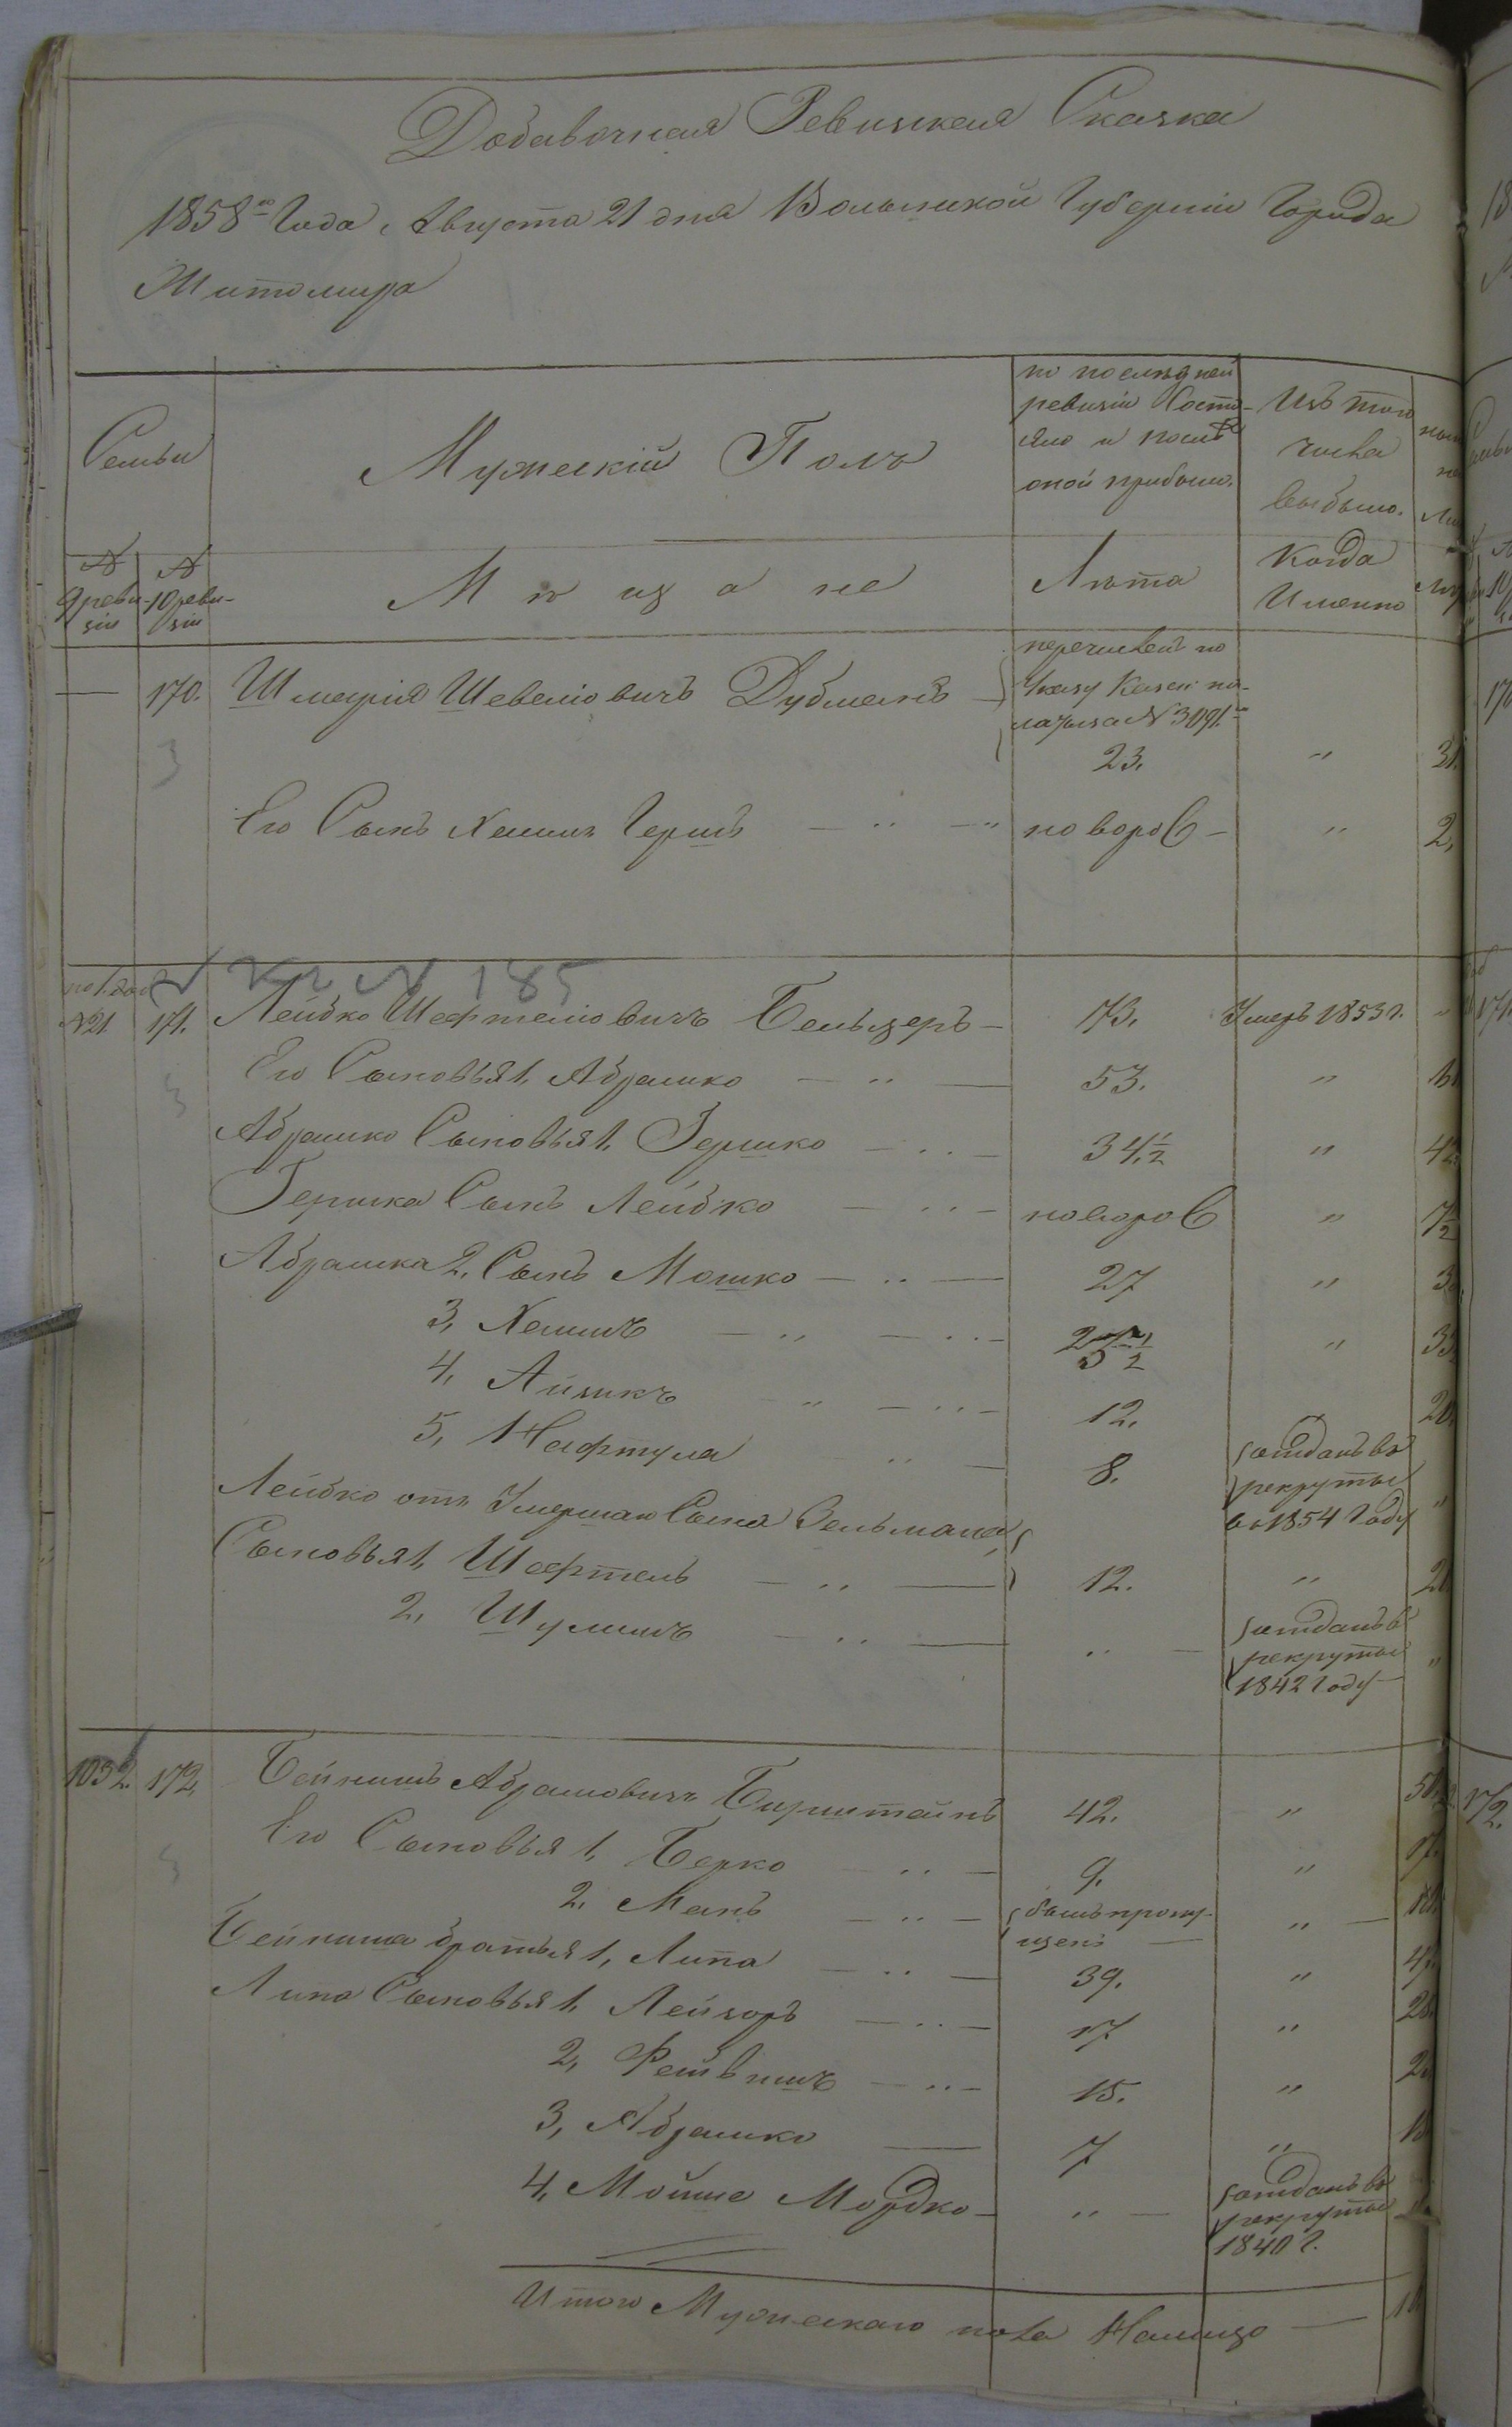 Добавочная Ревизская Сказка
1858го Года, Августа 21 дня Волынской Губернии Города
Житомира
Семьи
Мужескій Полъ
по последней
ревизіи Состо-
яло и после
оной прибыло.
Изъ того
числа
выбыло.
№
9 реви-
зіи
№
10 реви-
зіи
Мѣщане
Лѣта
Когда
Именно
— 170. Шмарія Шевелiовичъ Дубманъ
перечисленъ по
Указу Казен: па-
латы за № 3091.
23. " 31.
3
Его Сынъ Хаимъ Гершъ — " — " новорож — " 2.
№ 185
№21 171. Лейбко Шефтелiовичъ Бельцеръ — 73. Умеръ 1853 г. "
3
Его Сыновья 1, Абрашко — " — 53. "
Абрашко Сыновья 1, Гершко — " — 34 1/2 "
Гершка Сынъ Лейбко — " — новорож "
Абрашка 2, Сынъ Мошко — " — 27 "
3, Хаимъ — " — " — "
4, Айзикъ " — " — 12. "
5, Нафтула " — 8. отданъ въ
рекруты
въ 1854 Году "
Лейбко отъ Умершаго Сына Зельмана
Сыновья 1, Шефтель — " — 12. "
2, Шулимъ — " — " — отданъ въ
рекруты
1842 Году —
1032. 172, Бейнишъ Абрамовичъ Бирштайнъ 42. "
3
Его Сыновья 1, Берко — " — 9. "
2, Манъ — " — былъ пропу-
щенъ — " —
Бейниша братья 1, Липа — " — 39. "
Липа Сыновья 1, Лейзоръ — " — 17 "
2, Фейвишъ — " — 15. "
3, Абрашко — 7 "
4, Мойше Мордко — " — отданъ въ
рекруты
1840 г.
Итого Мужескаго пола Налицо —